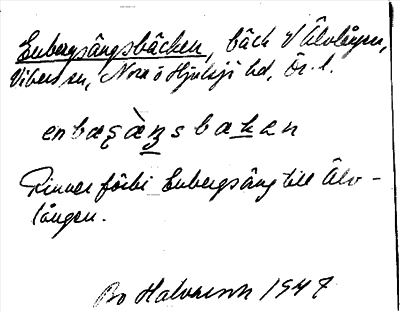 Enbergsängsbäcken, bäck V Älvlången,
Vikers sn, Nora o Hjulsjö hd, Ör. l.
enbæʂàŋsbakən
Rinner förbi Enbergsäng till Älv-
lången.
Bo Halvarson 1947